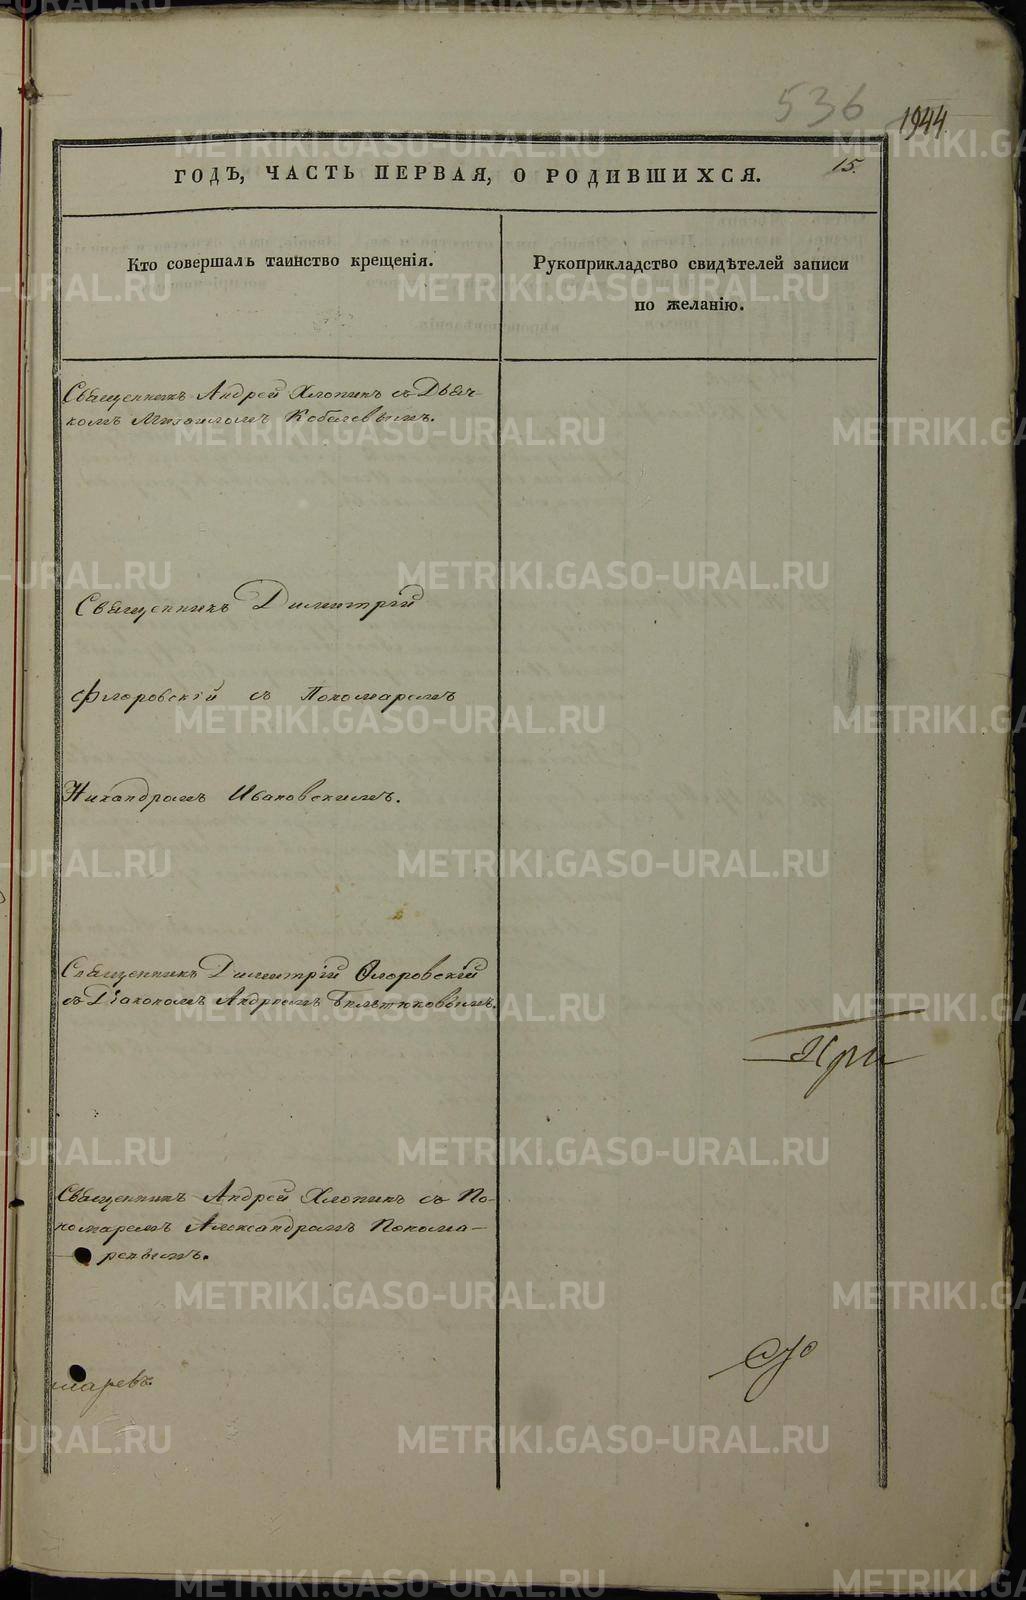 536
1944.
15.
ГОДЪ, ЧАСТЬ ПЕРВАЯ, О РОДИВШИХСЯ.
Кто совершалъ таинство крещенія.
Рукоприкладство свидѣтелей записи
по желанію.
Священникъ Андрей Хлопинъ съ Дьяч-
комъ Михаиломъ Кобелевымъ.
Священникъ Димитрій
Флоровскій съ Пономаремъ
Никандромъ Ивановскимъ.
Священникъ Димитрій Флоровскій
съ Діакономъ Андреемъ Бельтюковымъ.
При
Священникъ Андрей Хлопинъ съ По-
номаремъ Александромъ Понома-
ревымъ.
маревъ.
METRIKI.GASO-URAL.RU